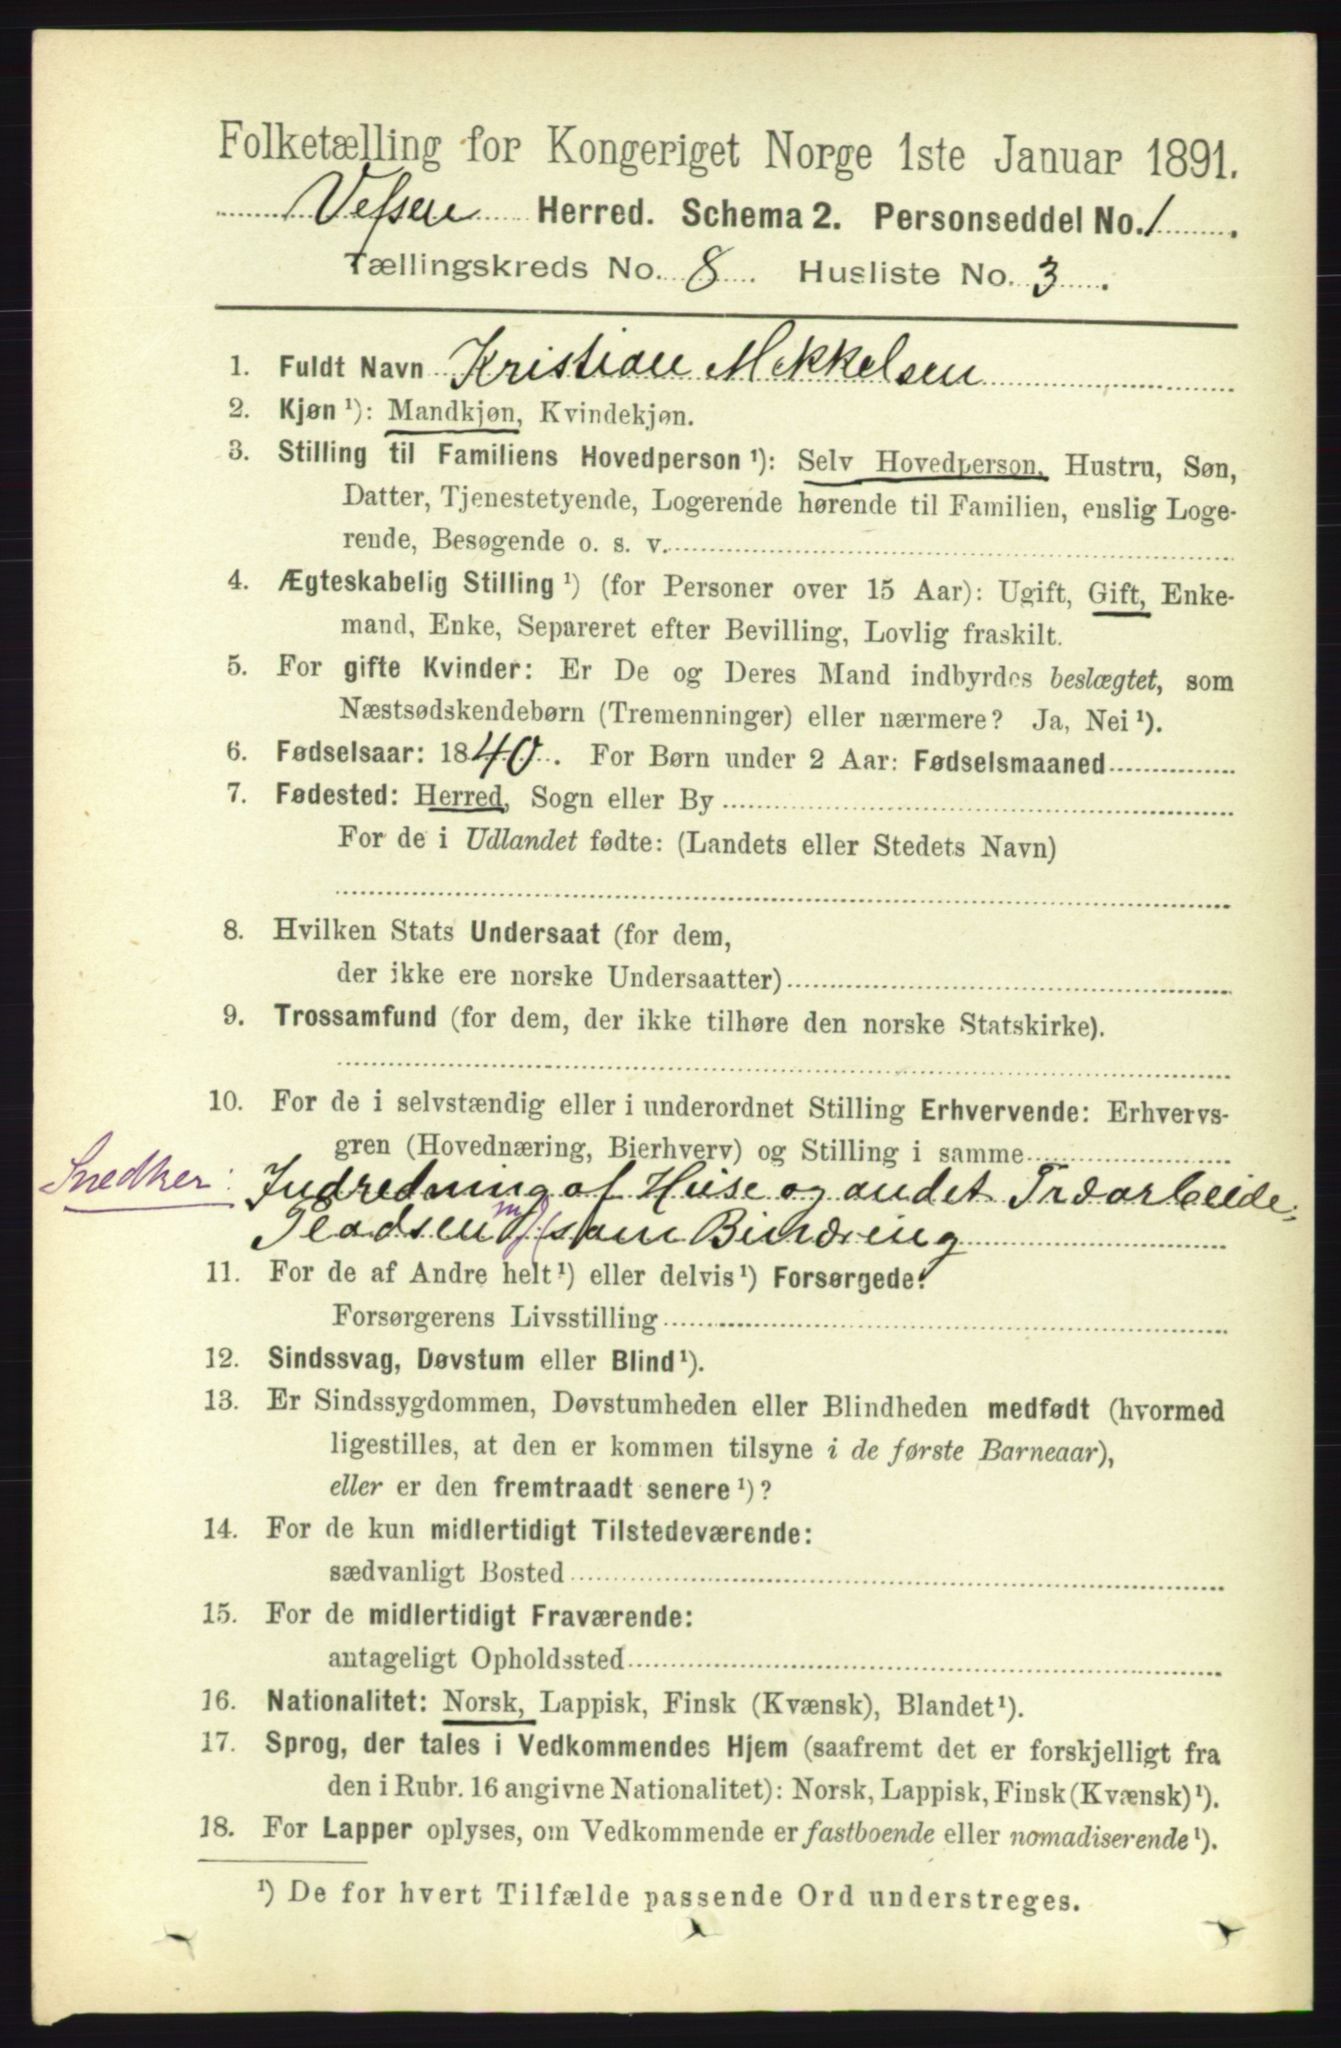 Folketælling for Kongeriget Norge 1ste Januar 1891.
Vefsen Herred. Schema 2. Personseddel No. 1.
Tællingskreds No. 8. Husliste No. 3.
1. Fuldt Navn Kristian Mikkelsen
2. Kjøn ¹): Mandkjøn, Kvindekjøn.
3. Stilling til Familiens Hovedperson ¹): Selv Hovedperson, Hustru, Søn,
Datter, Tjenestetyende, Logerende hørende til Familien, enslig Loge-
rende, Besøgende o. s. v.
4. Ægteskabelig Stilling ¹) (for Personer over 15 Aar): Ugift, Gift, Enke-
mand, Enke, Separeret efter Bevilling, Lovlig fraskilt.
5. For gifte Kvinder: Er De og Deres Mand indbyrdes beslægtet, som
Næstsødskendebørn (Tremenninger) eller nærmere? Ja, Nei ¹).
6. Fødselsaar: 1840. For Børn under 2 Aar: Fødselsmaaned
7. Fødested: Herred, Sogn eller By
For de i Udlandet fødte: (Landets eller Stedets Navn)
8. Hvilken Stats Undersaat (for dem,
der ikke ere norske Undersaatter)
9. Trossamfund (for dem, der ikke tilhøre den norske Statskirke).
10. For de i selvstændig eller i underordnet Stilling Erhvervende: Erhvervs-
gren (Hovednæring, Bierhverv) og Stilling i samme
Snedker: Indredning af Huse og andet Træarbeide,
som Binæring
11. For de af Andre helt ¹) eller delvis ¹) Forsørgede:
Forsørgerens Livsstilling
12. Sindssvag, Døvstum eller Blind ¹).
13. Er Sindssygdommen, Døvstumheden eller Blindheden medfødt (hvormed
ligestilles, at den er kommen tilsyne i de første Barneaar),
eller er den fremtraadt senere ¹)?
14. For de kun midlertidigt Tilstedeværende:
sædvanligt Bosted
15. For de midlertidigt Fraværende:
antageligt Opholdssted
16. Nationalitet: Norsk, Lappisk, Finsk (Kvænsk), Blandet ¹).
17. Sprog, der tales i Vedkommendes Hjem (saafremt det er forskjelligt fra
den i Rubr. 16 angivne Nationalitet): Norsk, Lappisk, Finsk (Kvænsk) ¹).
18. For Lapper oplyses, om Vedkommende er fastboende eller nomadiserende ¹).
¹) De for hvert Tilfælde passende Ord understreges.